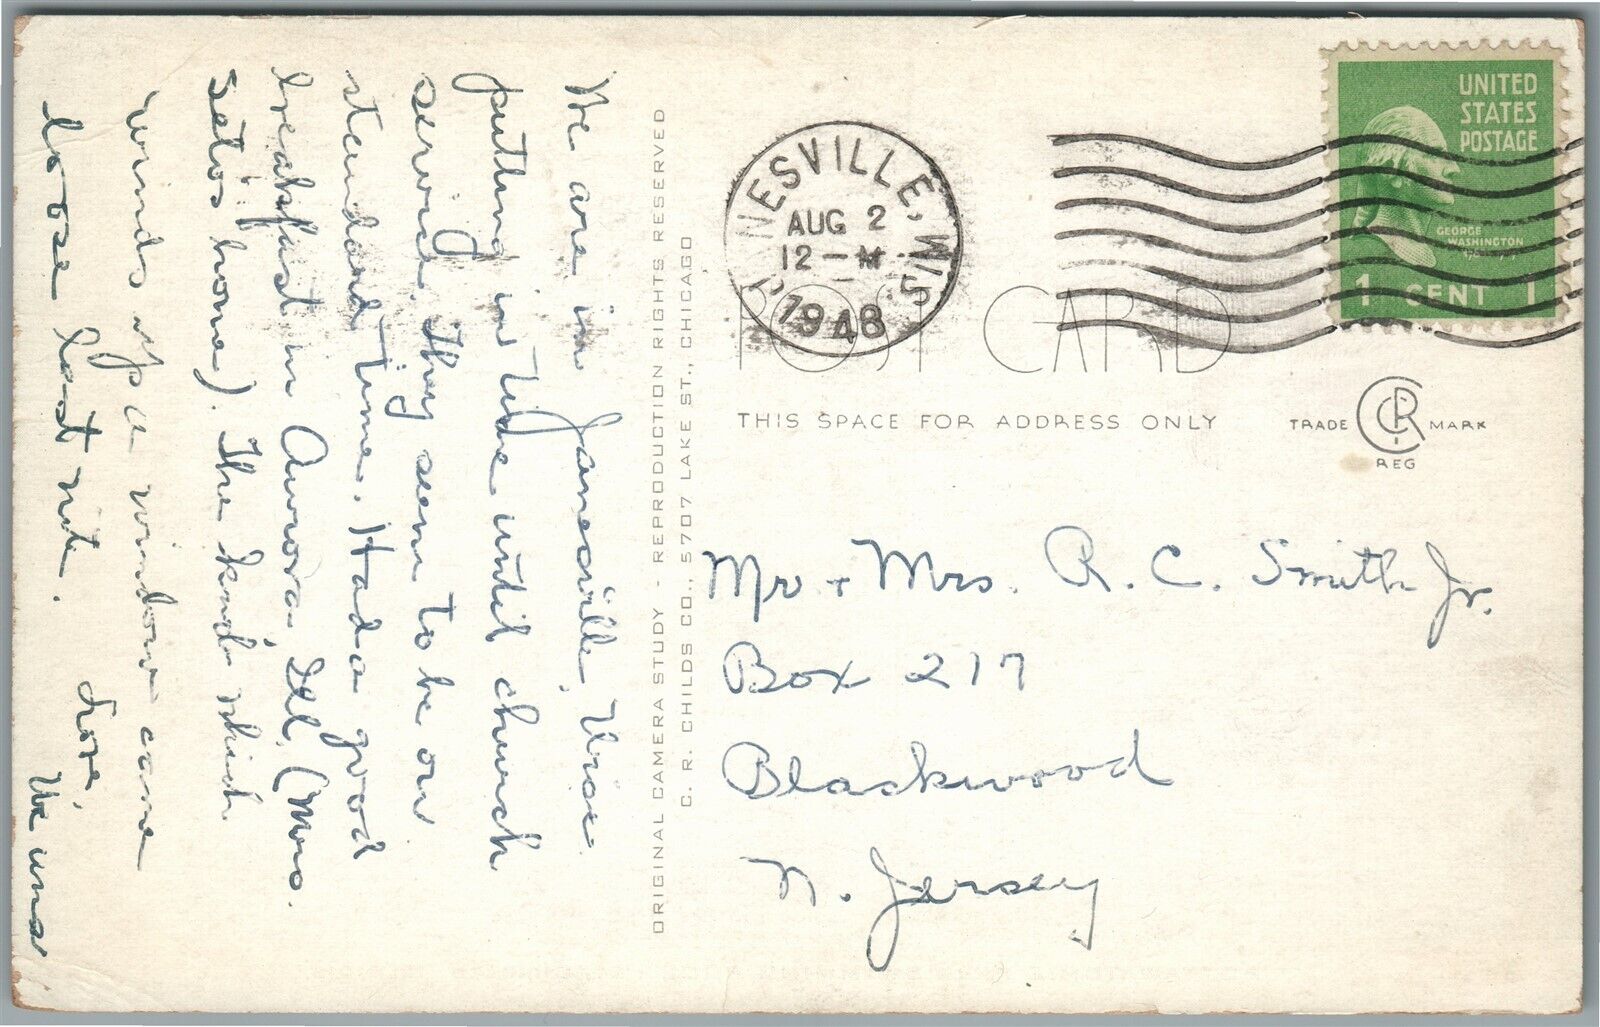 We are in Janesville, Wisc.
putting in time until church
service. They seem to be on
standard time. Had a good
breakfast in Aurora, Ill. (Mrs.
Seto's home). The kind which
winds up a window came
loose last nite.
Love,
ORIGINAL CAMERA STUDY - REPRODUCTION RIGHTS RESERVED
C. R. CHILDS CO., 5707 LAKE ST., CHICAGO
JANESVILLE, WIS.
AUG 2
12 - M
1948
UNITED
STATES
POSTAGE
GEORGE
WASHINGTON
1 CENT 1
POST CARD
THIS SPACE FOR ADDRESS ONLY
TRADE CRC MARK
REG
Mr + Mrs. R. C. Smith Jr.
Box 217
Blackwood
N. Jersey